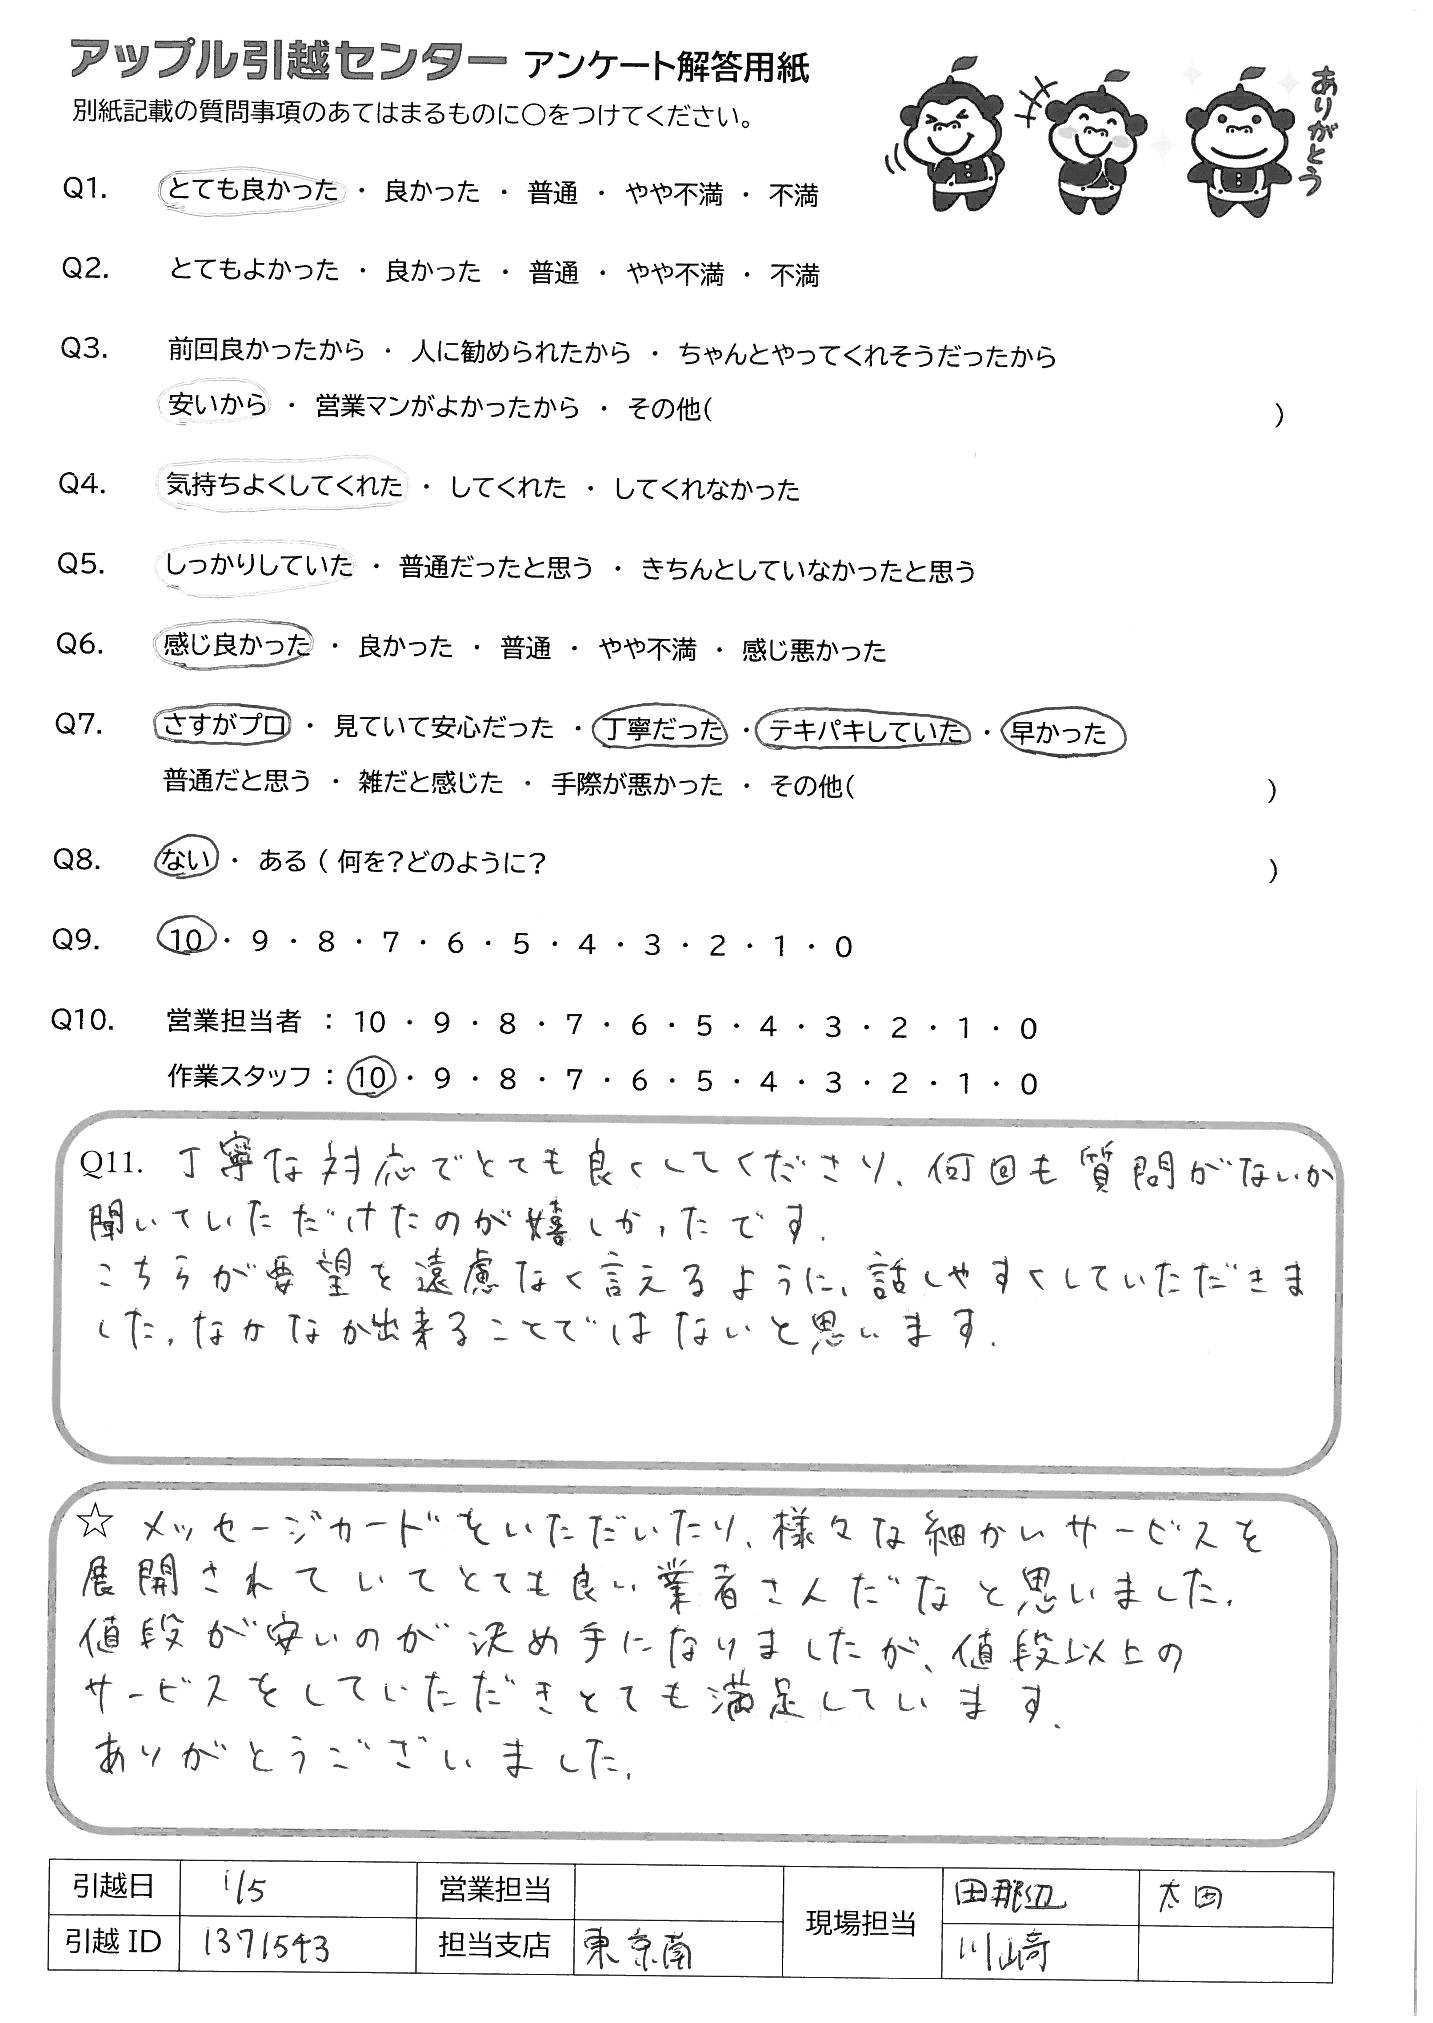 アップル引越センター アンケート解答用紙
別紙記載の質問事項のあてはまるものに〇をつけてください。
ありがとう
Q1. とても良かった ・ 良かった ・ 普通 ・ やや不満 ・ 不満
Q2. とてもよかった ・ 良かった ・ 普通 ・ やや不満 ・ 不満
Q3. 前回良かったから ・ 人に勧められたから ・ ちゃんとやってくれそうだったから
安いから ・ 営業マンがよかったから ・ その他( )
Q4. 気持ちよくしてくれた ・ してくれた ・ してくれなかった
Q5. しっかりしていた ・ 普通だったと思う ・ きちんとしていなかったと思う
Q6. 感じ良かった ・ 良かった ・ 普通 ・ やや不満 ・ 感じ悪かった
Q7. さすがプロ ・ 見ていて安心だった ・ 丁寧だった ・ テキパキしていた ・ 早かった
普通だと思う ・ 雑だと感じた ・ 手際が悪かった ・ その他( )
Q8. ない ・ ある ( 何を?どのように? )
Q9. 10 ・ 9 ・ 8 ・ 7 ・ 6 ・ 5 ・ 4 ・ 3 ・ 2 ・ 1 ・ 0
Q10. 営業担当者 : 10 ・ 9 ・ 8 ・ 7 ・ 6 ・ 5 ・ 4 ・ 3 ・ 2 ・ 1 ・ 0
作業スタッフ : 10 ・ 9 ・ 8 ・ 7 ・ 6 ・ 5 ・ 4 ・ 3 ・ 2 ・ 1 ・ 0
Q11. 丁寧な対応でとても良くしてくださり、何回も質問がないか
聞いていただけたのが嬉しかったです.
こちらが要望を遠慮なく言えるように、話しやすくしていただきま
した. なかなか出来ることではないと思います.
☆ メッセージカードをいただいたり、様々な細かいサービスを
展開されていてとても良い業者さんだなと思いました.
値段が安いのが決め手になりましたが、値段以上の
サービスをしていただきとても満足しています.
ありがとうございました.
引越日 1/5 営業担当 現場担当 田那辺 太田
引越ID 1371543 担当支店 東京南 川崎